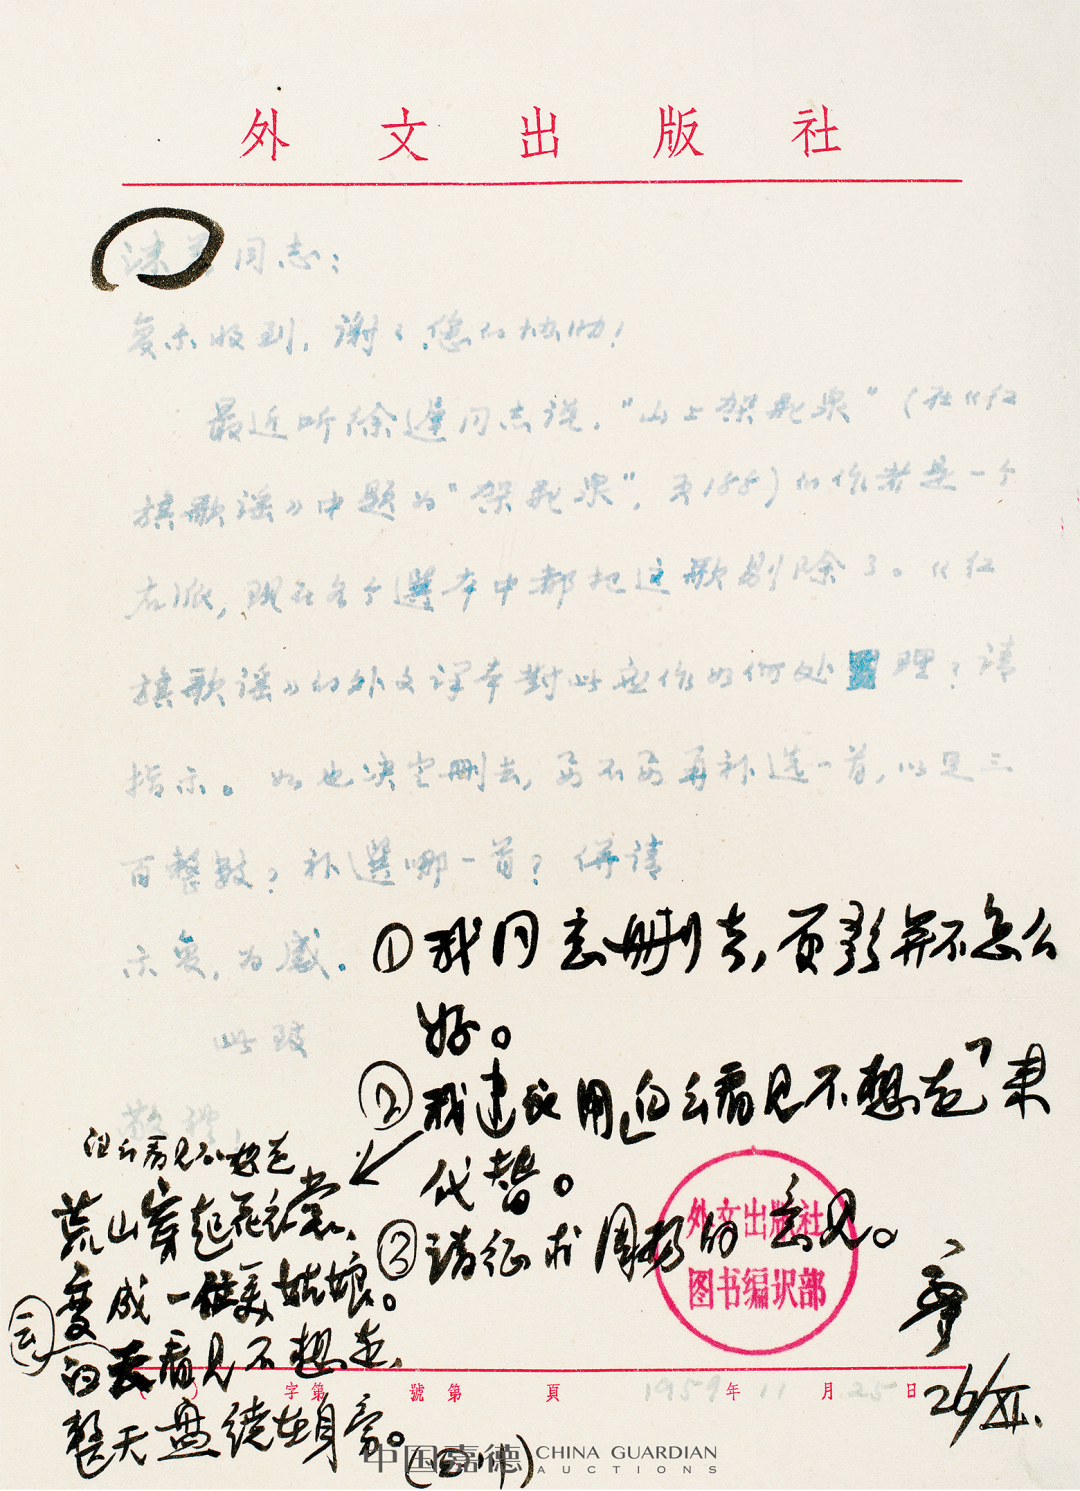 外文出版社
沫若同志：
复示收到，谢谢您的协助！
最近听徐迟同志说，“山上架飞泉”（在《红
旗歌谣》中题为“架飞泉”，页188）的作者是一个
右派，现在各个選本中都把这歌剔除了。《红
旗歌谣》的外文译本對此应作如何处理？请
指示。如也决定删去，要不要再补选一首，以足三
百整数？补選哪一首？併请
示复，为感。
此致
敬礼！
①我同意删去，页数并不怎么
好。
②我建议用「白云看见不想走」来
代替。
③请征求周扬的意见。
26/XI.
白云看见不想走
荒山穿起花衣裳，
变成一位美姑娘。
白云看见不想走，
整天盘绕在身旁。
(四川)
外文出版社
图书编识部
字第 號第 頁 1959年11月25日
中国嘉德 CHINA GUARDIAN
AUCTIONS